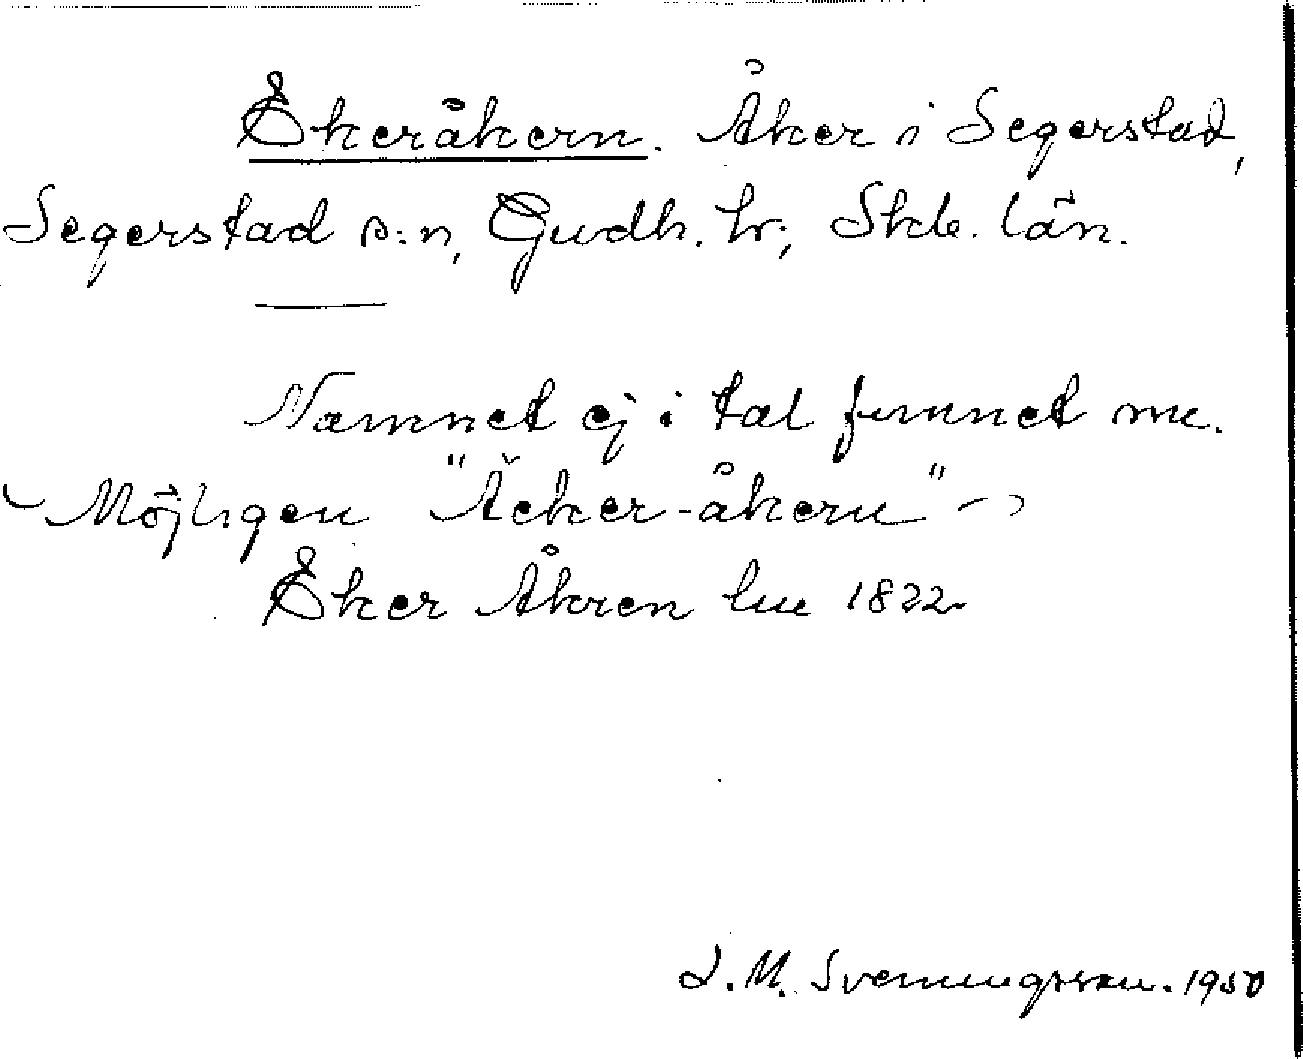 Ekeråkern. Åker i Segerstad,
Segerstad s:n, Gudh. hr, Skb. län.
Namnet ej i tal funnet me.
Möjligen "Äcker-åkern"
Eker Åkren lue 1822.
J. M. Svenningsson. 1950